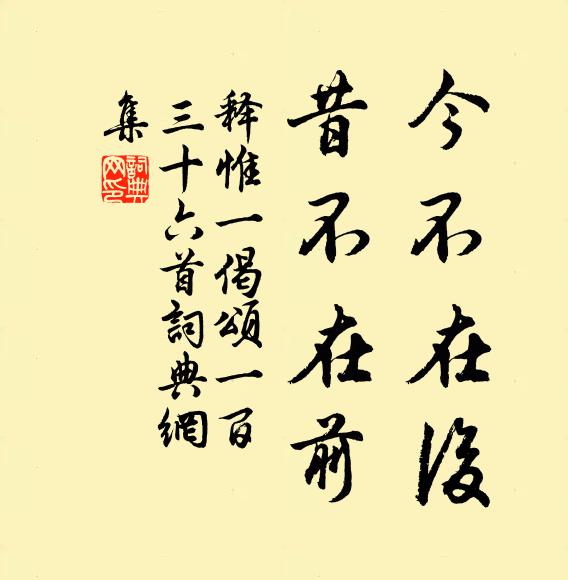 今不在後
昔不在前
释惟一偈頌一百
三十六首詞典網
集
詞典網印